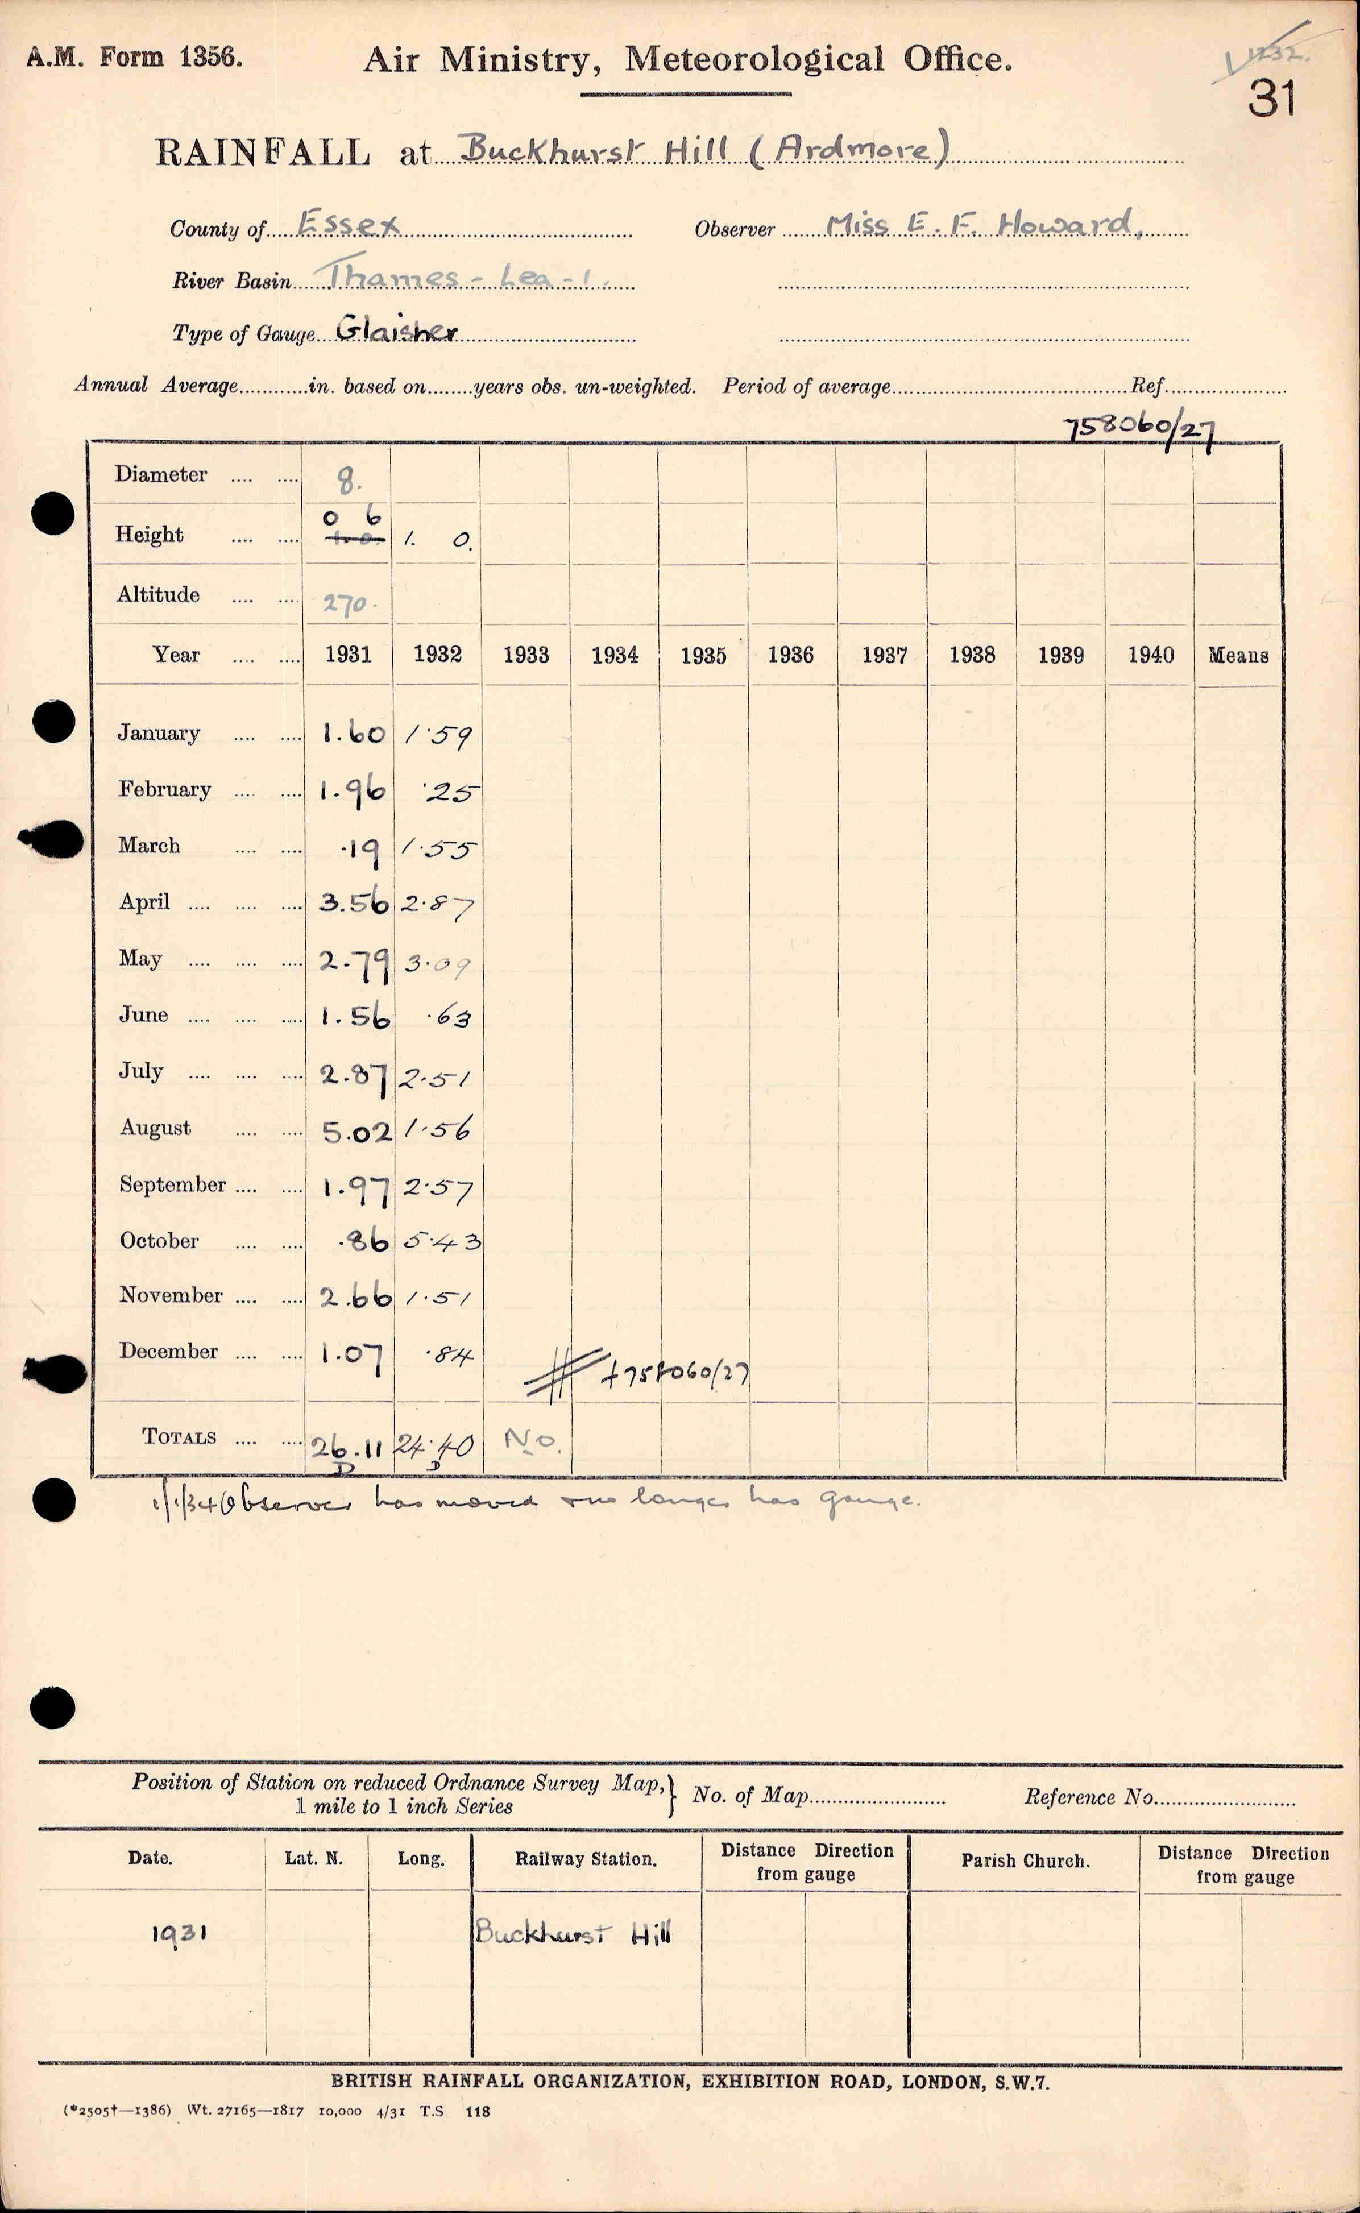 A.M. Form 1356. Air Ministry, Meteorological Office. 1232.
31
RAINFALL at Buckhurst Hill (Ardmore)
County of Essex Observer Miss E. F. Howard,
River Basin Thames - Lea - 1.
Type of Gauge Glaisher
Annual Average............in. based on........years obs. un-weighted. Period of average.......... Ref..........
758060/27
Diameter .... .... 8.
Height .... .... 0 6 1. 0.
Altitude .... .... 270.
Year .... .... 1931 1932 1933 1934 1935 1936 1937 1938 1939 1940 Means
January .... .... 1.60 1.59
February .... .... 1.96 .25
March .... .... .19 1.55
April .... .... .... 3.56 2.87
May .... .... .... 2.79 3.09
June .... .... .... 1.56 .63
July .... .... .... 2.87 2.51
August .... .... 5.02 1.56
September .... .... 1.97 2.57
October .... .... .86 5.43
November .... .... 2.66 1.51
December .... .... 1.07 .84 +758060/27
TOTALS .... .... 26.11 24.40 No.
D D
1/1/34 Observer has moved & no longer has gauge.
Position of Station on reduced Ordnance Survey Map,} No. of Map.......... Reference No..........
1 mile to 1 inch Series
Date. Lat. N. Long. Railway Station. Distance Direction from gauge Parish Church. Distance Direction from gauge
1931 Buckhurst Hill
BRITISH RAINFALL ORGANIZATION, EXHIBITION ROAD, LONDON, S.W.7.
(*2505†—1386) Wt. 27165—1817 10,000 4/31 T.S 118